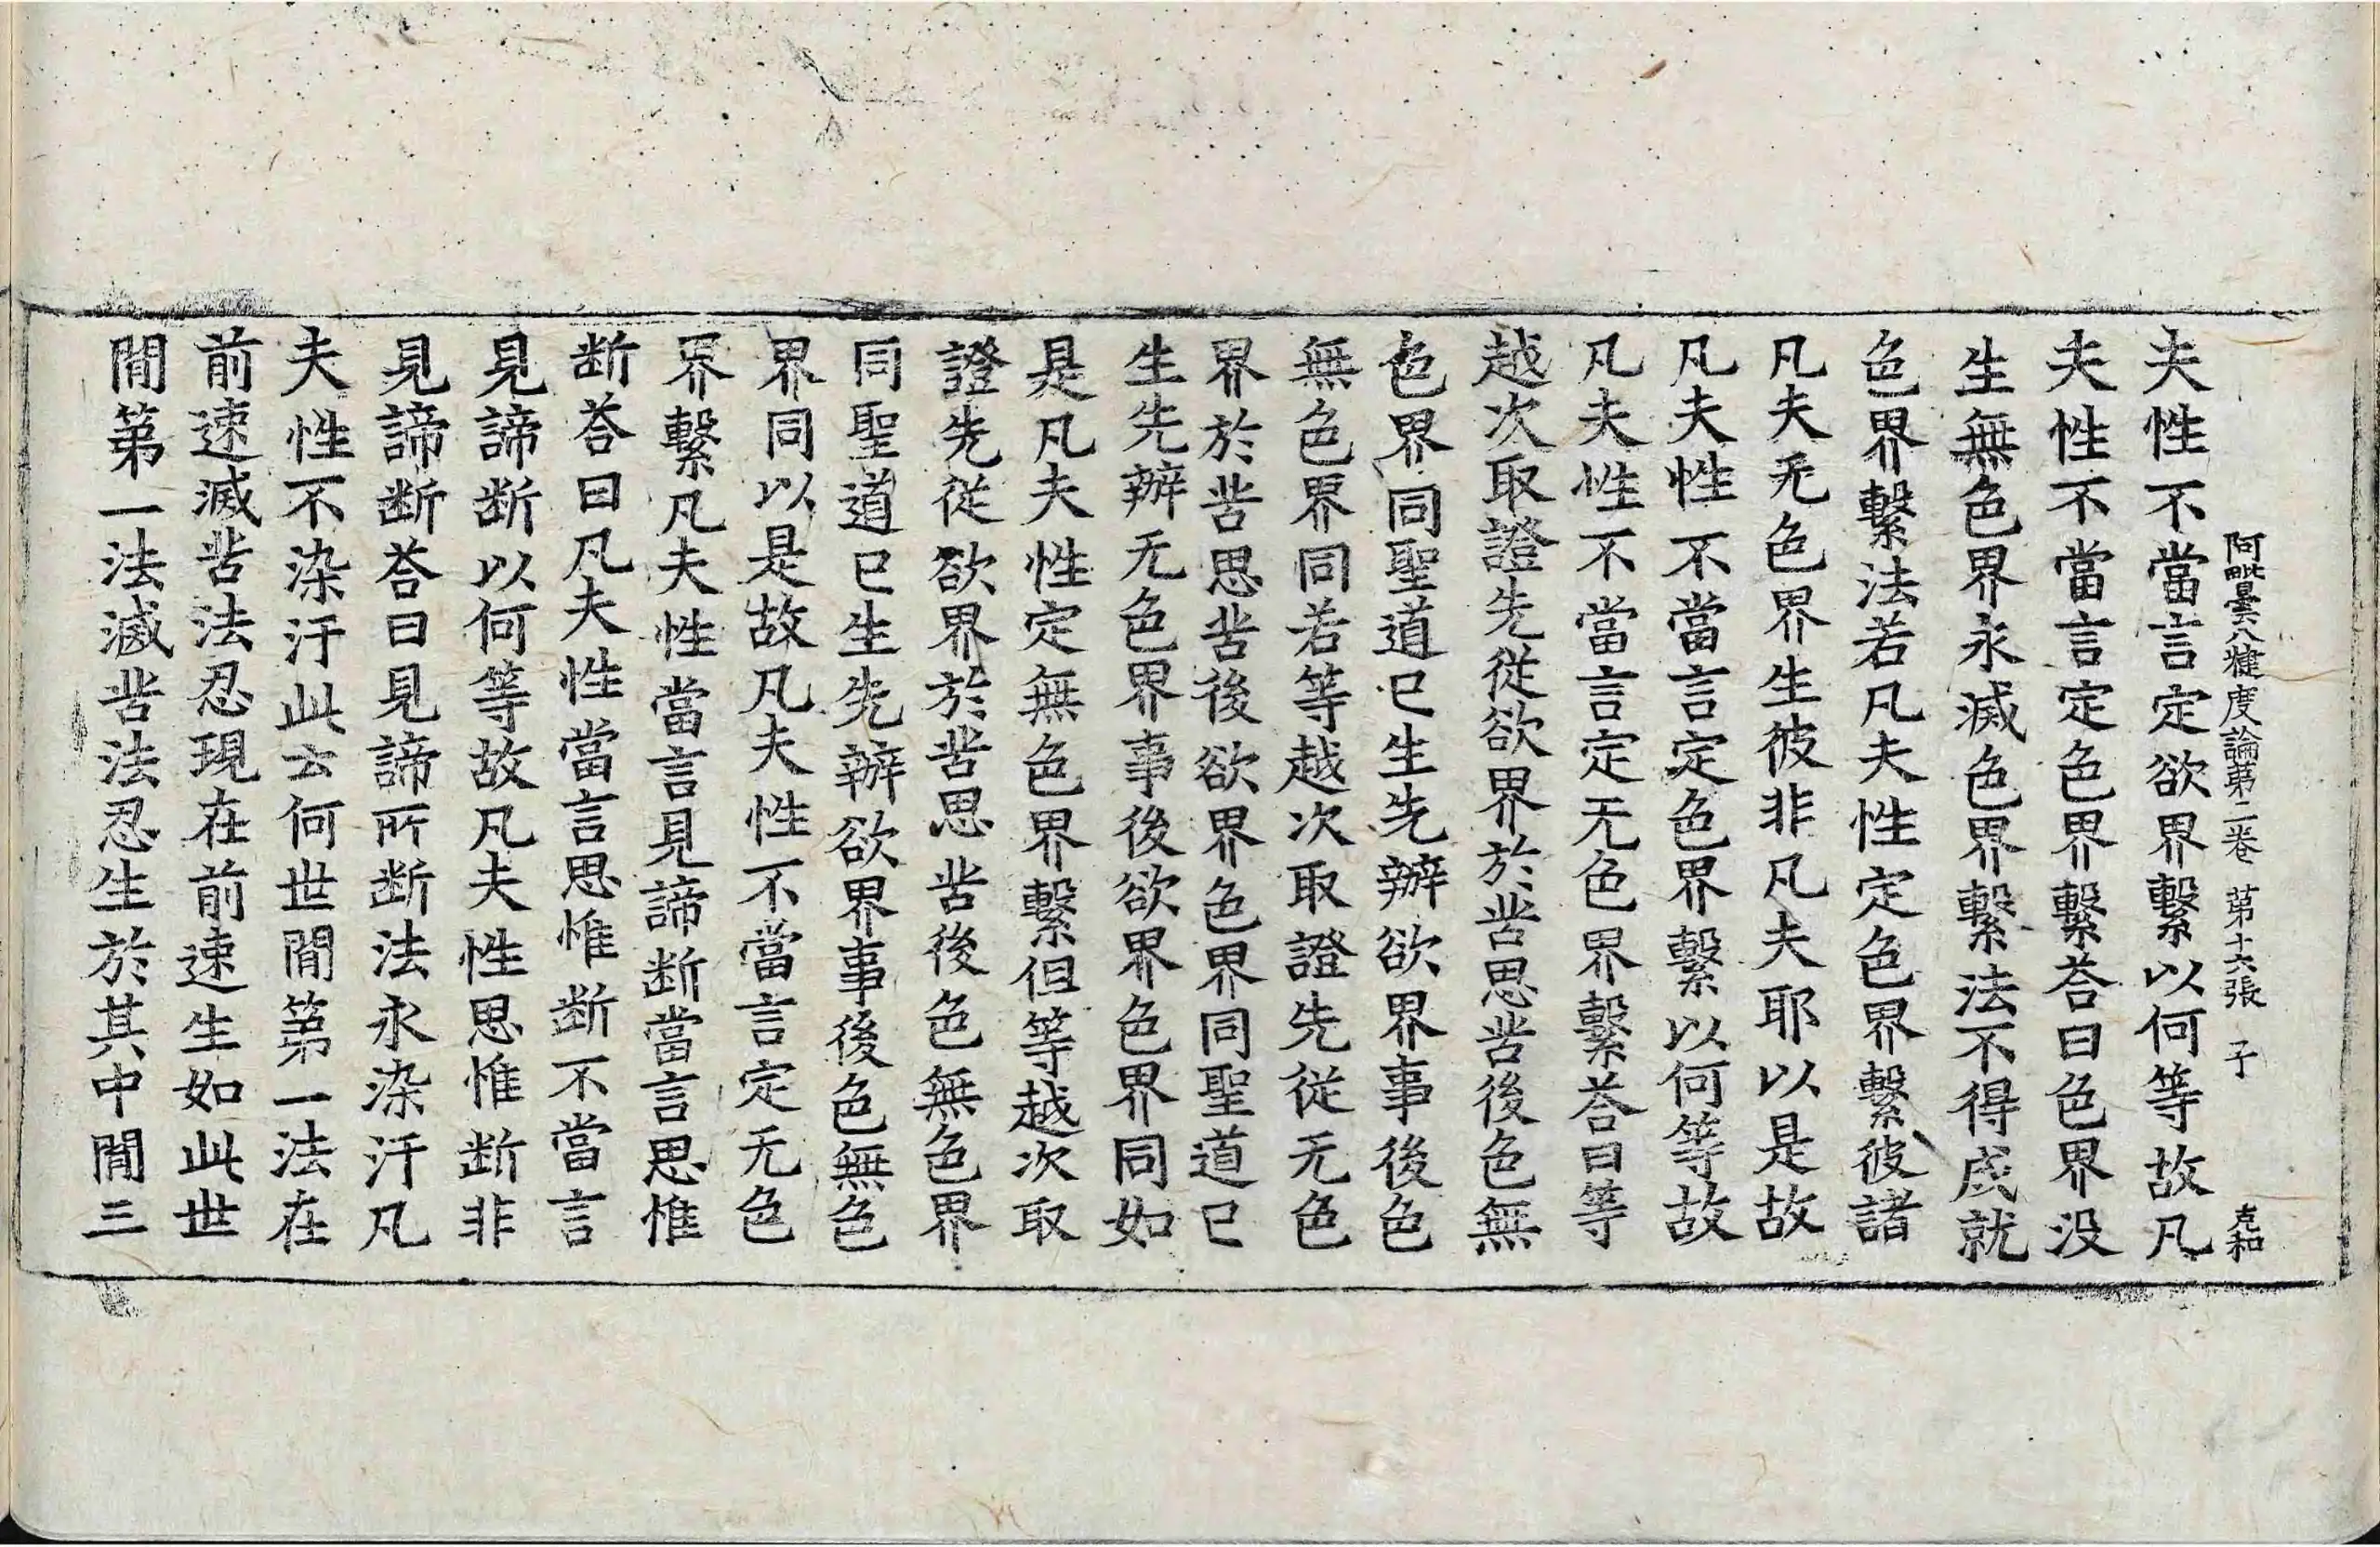 阿毗曇八犍度論第二卷 第十六張 子
夫性不當言定欲界繫以何等故凡
夫性不當言定色界繫荅曰色界没
生無色界永滅色界繫法不得成就
色界繫法若凡夫性定色界繫彼諸
凡夫无色界生彼非凡夫耶以是故
凡夫性不當言定色界繫以何等故
凡夫性不當言定无色界繫荅曰等
越次取證先從欲界於苦思苦後色無
色界同聖道已生先辦欲界事後色
無色界同若等越次取證先從无色
界於苦思苦後欲界色界同聖道已
生先辦无色界事後欲界色界同如
是凡夫性定無色界繫但等越次取
證先從欲界於苦思苦後色無色界
同聖道已生先辦欲界事後色無色
界同以是故凡夫性不當言定无色
界繫凡夫性當言見諦断當言思惟
断荅曰凡夫性當言思惟断不當言
見諦断以何等故凡夫性思惟断非
見諦断荅曰見諦所断法永染汙凡
夫性不染汙此云何世間第一法在
前速滅苦法忍現在前速生如此世
間第一法滅苦法忍生於其中間三